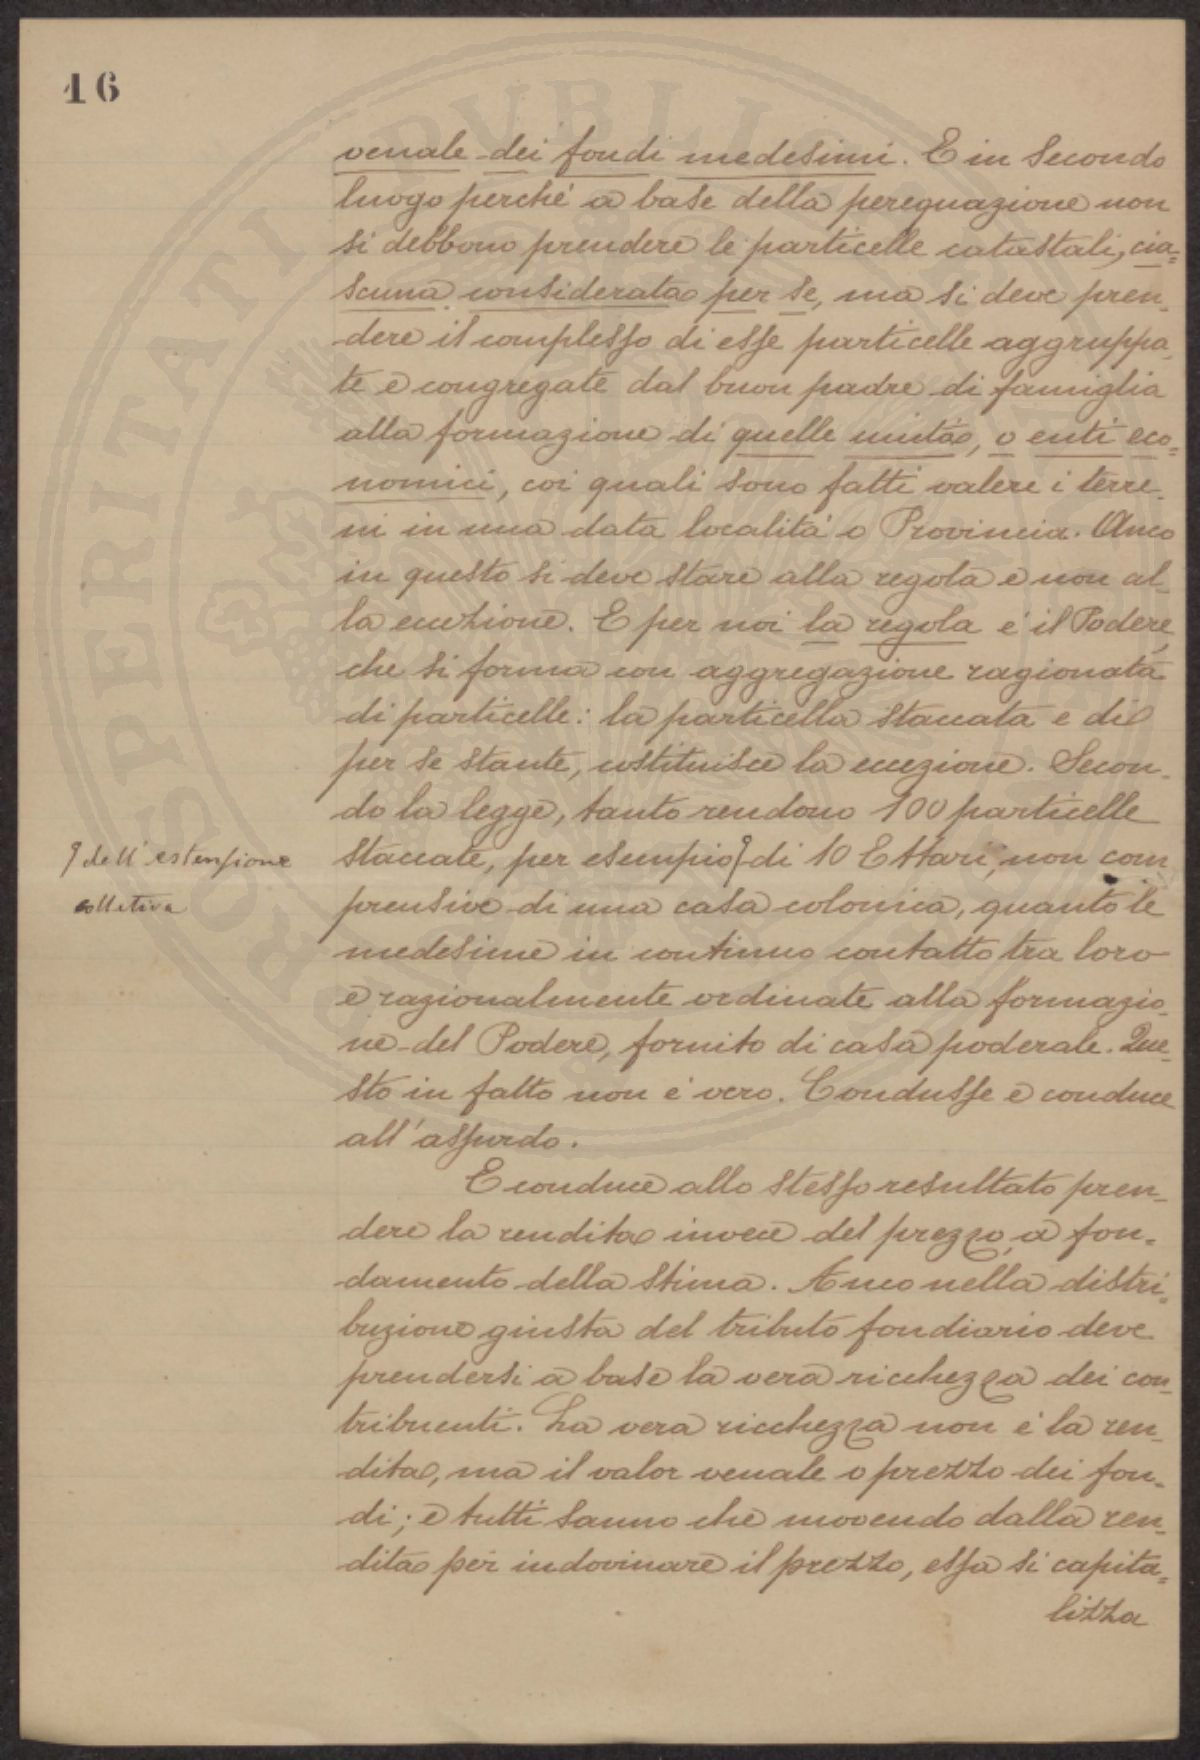 16
venale dei fondi medesimi. E in Secondo
luogo perché a base della perequazione non
si debbono prendere le particelle catastali, cia=
scuna considerata per se, ma si deve pren-
dere il complesso di esse particelle aggruppa-
te e congregate dal buon padre di famiglia
alla formazione di quelle unità, o enti eco=
nomici, coi quali sono fatti valere i terre-
ni in una data località o Provincia. Anco
in questo si deve stare alla regola e non al-
la eccezione. E per noi la regola è il Podere,
che si forma con aggregazione ragionata
di particelle: la particella staccata e di
per se stante, costituisce la eccezione. Secon-
do la legge, tanto rendono 100 particelle
staccate, per esempio di 10 Ettari, non com
prensive di una casa colonica, quanto le
medesime in continuo contatto tra loro
e razionalmente ordinate alla formazio-
ne del Podere, fornito di casa poderale. Que-
sto in fatto non è vero. Condusse e conduce
all'assurdo.
E conduce allo stesso resultato pren-
dere la rendita invece del prezzo, a fon-
damento della stima. Anco nella distri=
buzione giusta del tributo fondiario deve
prendersi a base la vera ricchezza dei con-
tribuenti. La vera ricchezza non è la ren-
dita, ma il valor venale o prezzo dei fon-
di; e tutti sanno che movendo dalla ren-
dita per indovinare il prezzo, essa si capita=
lizza
dell'estensione
collettiva
PROSPERITATI PUBLICAE